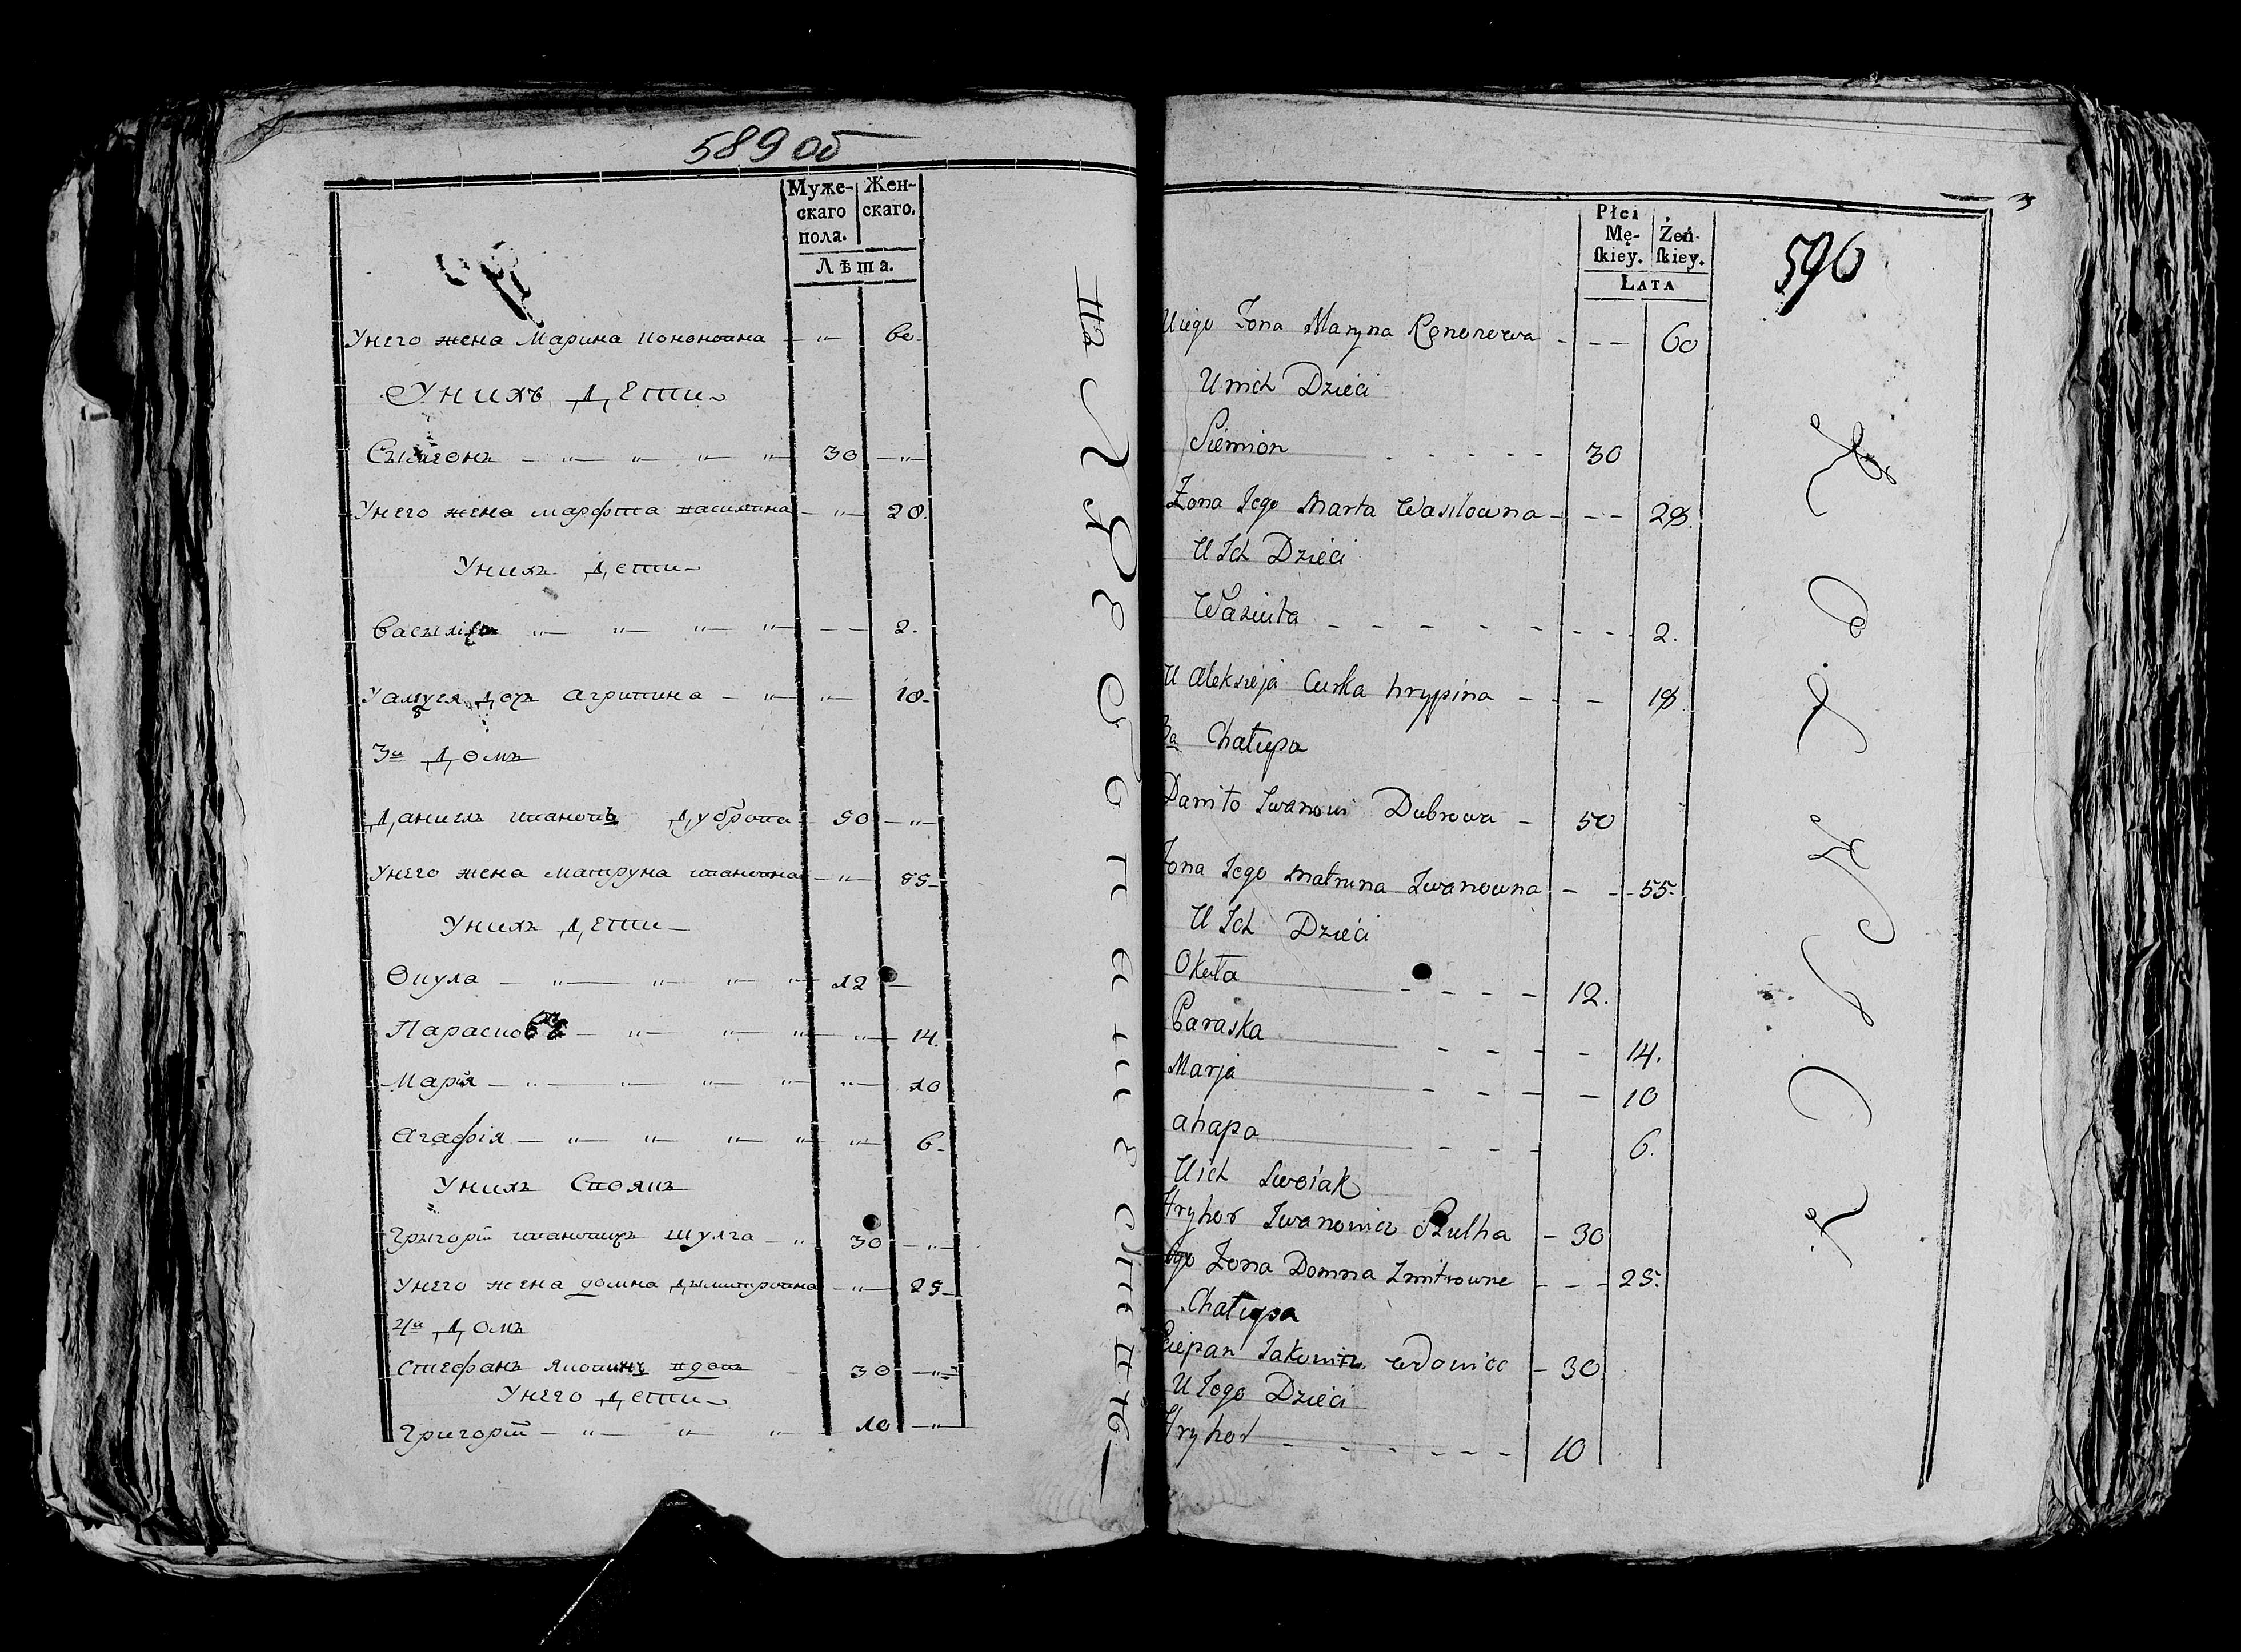 589 об
Муже- Жен-
скаго скаго.
пола.
Лѣта.
Унего жена Марина Кононовна — " — 60.
Унихъ Дети
Сымеонъ — " — " — " — " 30 — " —
Унего жена Марфта Василивна — " — 28.
Унихъ Дети —
Васил " — " — " — " — — — 2.
дочь Агрипина — " — " — 18.
3й Домъ
Данилъ Ивановъ Дуброва 50 — " —
Унего жена Матруна Ивановна — " — 55 —
Унихъ Дети —
Окула — " — " — " — " 12 —
Параско — " — " — " — " — 14.
Марія — " — " — " — " — " — 10
Агафія — " — " — " — " — " — 6 —
Унихъ Своякъ
Григорій Ивановичъ Шулга — " 30 — " —
Унего жена Домна Дымитровна — " — 25 —
4й Домъ
Стефанъ Яковинъ вдовъ — 30 — " —
Унего Дети
Григорій — " — " — " 10 — " —
Płci
Mę- Żeń-
ſkiey. ſkiey.
Łata
596
Uiego Żona Maryna Kononowa - - - 60
Unich Dzieci
Siemion - - - - - 30
Żona Jego Marta Wasilowna - - - 28.
U Ich Dzieci
Waziuta - - - - - - - - 2.
U Aleksieja Curka hrypina - - - 18.
3a Chałupa
Daniło Iwanow Dubrowa - 50
Żona Jego Matruna Iwanowna - - - 55.
U Ich Dzieci
Okuła - - - - 12.
Paraska - - - - 14.
Marja - - - - 10
ahapa - - - 6.
Uich Swoiak
Hryhor Iwanowicz Szulha - 30
Jego Żona Domna Zmitrowne - - - 25.
Chałupa
Sciepan Jakowicz wdowiec - 30
U Jego Dzieci
Hryhor - - - - - - 10